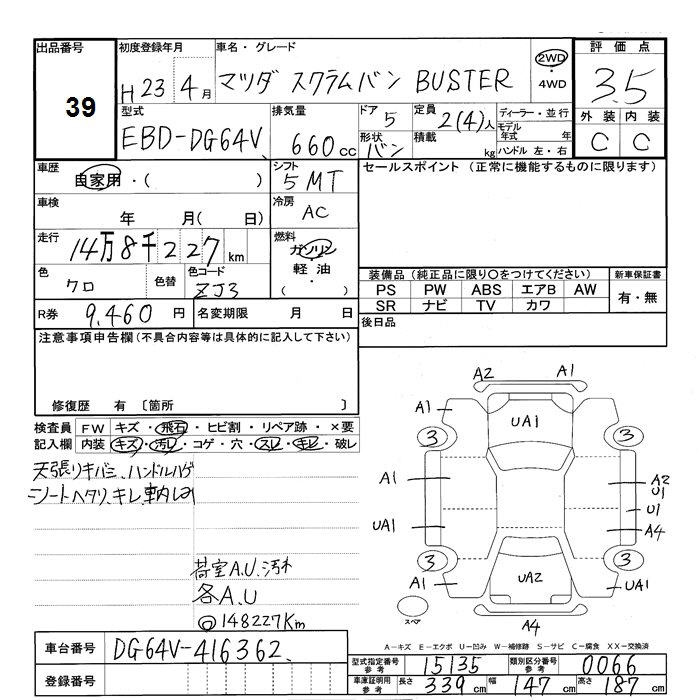 出品番号
39
初度登録年月
H23 4月
車名・グレード
マツダ スクラムバン BUSTER
2WD
・
4WD
評価点
3.5
型式
EBD-DG64V
排気量
660cc
ドア
5
形状
バン
定員
2(4)人
積載
kg
ディーラー・並行
モデル年式 年
ハンドル 左・右
外装 内装
C C
車歴
自家用・( )
シフト
5MT
セールスポイント (正常に機能するものに限ります)
車検
年 月( 日)
冷房
AC
走行
14万8千227km
燃料
ガソリン
軽油
・
( )
色
クロ
色替
色コード
ZJ3
装備品(純正品に限り〇をつけてください)
新車保証書
PS PW ABS エアB AW
SR ナビ TV カワ
有・無
R券 9,460 円
名変期限 月 日
後日品
注意事項申告欄(不具合内容等は具体的に記入して下さい)
修復歴 有 〔箇所 〕
検査員 FW キズ・飛石・ヒビ割・リペア跡・×要
記入欄 内装 キズ・汚レ・コゲ・穴・スレ・キレ・破レ
天張リキバミ、ハンドルハゲ
シートヘタリ、キレ、車内しみ
荷室A.U.汚れ
各A.U
148227Km
A2 A1
A1 UA1
3 3
A1 A2
U1
U1
UA1 A4
3 3
A1 UA2 UA1
スペア
A4
A-キズ E-エクボ U-凹み W-補修跡 S-サビ C-腐食 XX-交換済
車台番号 DG64V-416362
登録番号
型式指定番号 参考 15135 類別区分番号 参考 0066
車庫証明用 参考 長さ 339cm 幅 147cm 高さ 187cm